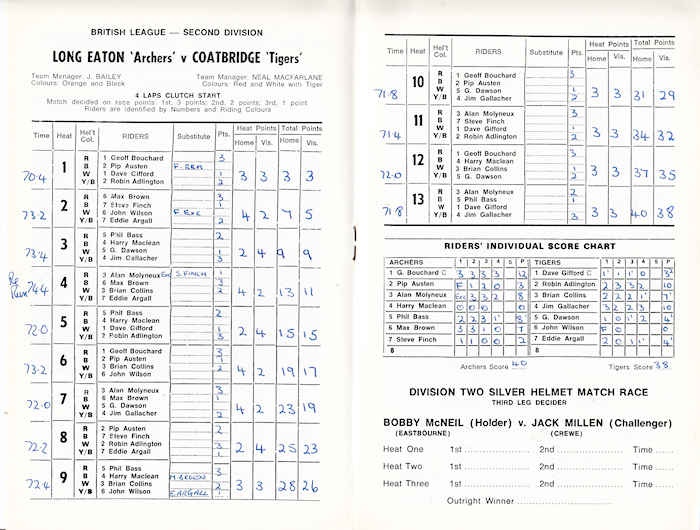 BRITISH LEAGUE — SECOND DIVISION
LONG EATON 'Archers' v COATBRIDGE 'Tigers'
Team Manager: J. BAILEY Team Manager: NEAL MACFARLANE
Colours: Orange and Black Colours: Red and White with Tiger
4 LAPS CLUTCH START
Match decided on race points: 1st, 3 points; 2nd, 2 points; 3rd, 1 point
Riders are identified by Numbers and Riding Colours
Time Heat Hel't Col. RIDERS Substitute Pts. Heat Points Home Vis. Total Points Home Vis.
R 1 Geoff Bouchard 3
70.4 1 B 2 Pip Austen F. REM 3 3 3 3
W 1 Dave Gifford 1
Y/B 2 Robin Adlington 2
R 6 Max Brown 3
73.2 2 B 7 Steve Finch 1 4 2 7 5
W 6 John Wilson F. Exc
Y/B 7 Eddie Argall 2
R 5 Phil Bass 2
73.4 3 B 4 Harry Maclean 2 4 9 9
W 5 G. Dawson 1
Y/B 4 Jim Gallacher 3
R 3 Alan Molyneux Exc S. FINCH 1
Re Run 74.4 4 B 6 Max Brown 3 4 2 13 11
W 3 Brian Collins 2
Y/B 7 Eddie Argall
R 5 Phil Bass 2
72.0 5 B 4 Harry Maclean 2 4 15 15
W 1 Dave Gifford 1
Y/B 2 Robin Adlington 3
R 1 Geoff Bouchard 3
73.2 6 B 2 Pip Austen 1 4 2 19 17
W 3 Brian Collins 2
Y/B 6 John Wilson
R 3 Alan Molyneux 3
72.0 7 B 6 Max Brown 1 4 2 23 19
W 5 G. Dawson
Y/B 4 Jim Gallacher 2
R 2 Pip Austen 2
72.2 8 B 7 Steve Finch 2 4 25 23
W 2 Robin Adlington 3
Y/B 7 Eddie Argall 1
R 5 Phil Bass 3
72.4 9 B 4 Harry Maclean M. BROWN 3 3 28 26
W 3 Brian Collins 2
Y/B 6 John Wilson E ARGALL 1
Time Heat Hel't Col. RIDERS Substitute Pts. Heat Points Home Vis. Total Points Home Vis.
R 1 Geoff Bouchard 3
71.8 10 B 2 Pip Austen 3 3 31 29
W 5 G. Dawson 1
Y/B 4 Jim Gallacher 2
R 3 Alan Molyneux 3
71.4 11 B 7 Steve Finch 3 3 34 32
W 1 Dave Gifford 1
Y/B 2 Robin Adlington 2
R 1 Geoff Bouchard 3
72.0 12 B 4 Harry Maclean 3 3 37 35
W 3 Brian Collins 1
Y/B 5 G. Dawson 2
R 3 Alan Molyneux 2
71.8 13 B 5 Phil Bass 1 3 3 40 38
W 1 Dave Gifford
Y/B 4 Jim Gallacher 3
RIDERS' INDIVIDUAL SCORE CHART
ARCHERS 1 2 3 4 5 P TIGERS 1 2 3 4 5 P
1 G. Bouchard C 3 3 3 3 12 1 Dave Gifford C 1' 1' 1 0 3²
2 Pip Austen F 1 2 0 3 2 Robin Adlington 2 3 3 2 10
3 Alan Molyneux Exc 3 3 2 8 3 Brian Collins 2 2 2 1' 7'
4 Harry Maclean 0 0 0 0 4 Jim Gallacher 3 2 2 3 10
5 Phil Bass 2 2 3 1' 8' 5 G. Dawson 1 0 1' 2 4'
6 Max Brown 3 3 1 0 7 6 John Wilson F 0 0
7 Steve Finch 1 1 0 0 2 7 Eddie Argall 2 0 1 1' 4'
8 8
Archers Score 40 Tigers Score 38
DIVISION TWO SILVER HELMET MATCH RACE
THIRD LEG DECIDER
BOBBY McNEIL (Holder) v. JACK MILLEN (Challenger)
(EASTBOURNE) (CREWE)
Heat One 1st 2nd Time
Heat Two 1st 2nd Time
Heat Three 1st 2nd Time
Outright Winner